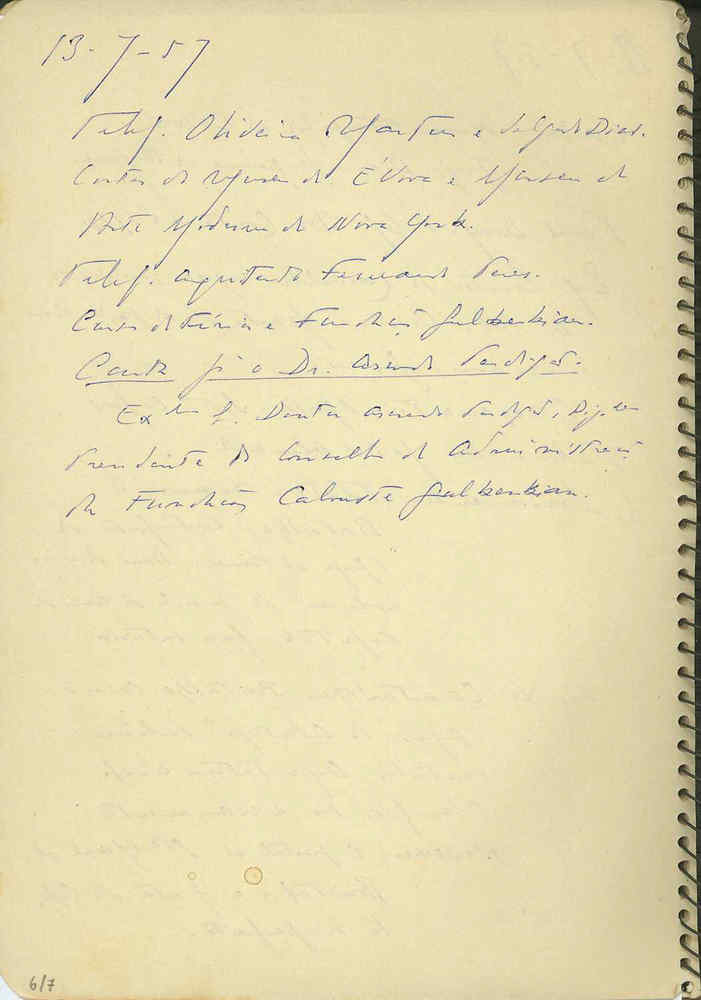 13-7-57
Telef. Oliveira Martins e Salgado Dias.
Cartas do Museu de Évora e Museu de
Arte Moderna de Nova York.
Telef. Arquitecto Fernando Peres.
Carta de Fundação Gulbenkian.
Carta p.ª o Dr. Azeredo Perdigão.
Ex.mo S. Doutor Azeredo Perdigão,
Presidente do Conselho de Administração
da Fundação Calouste Gulbenkian.
6/7